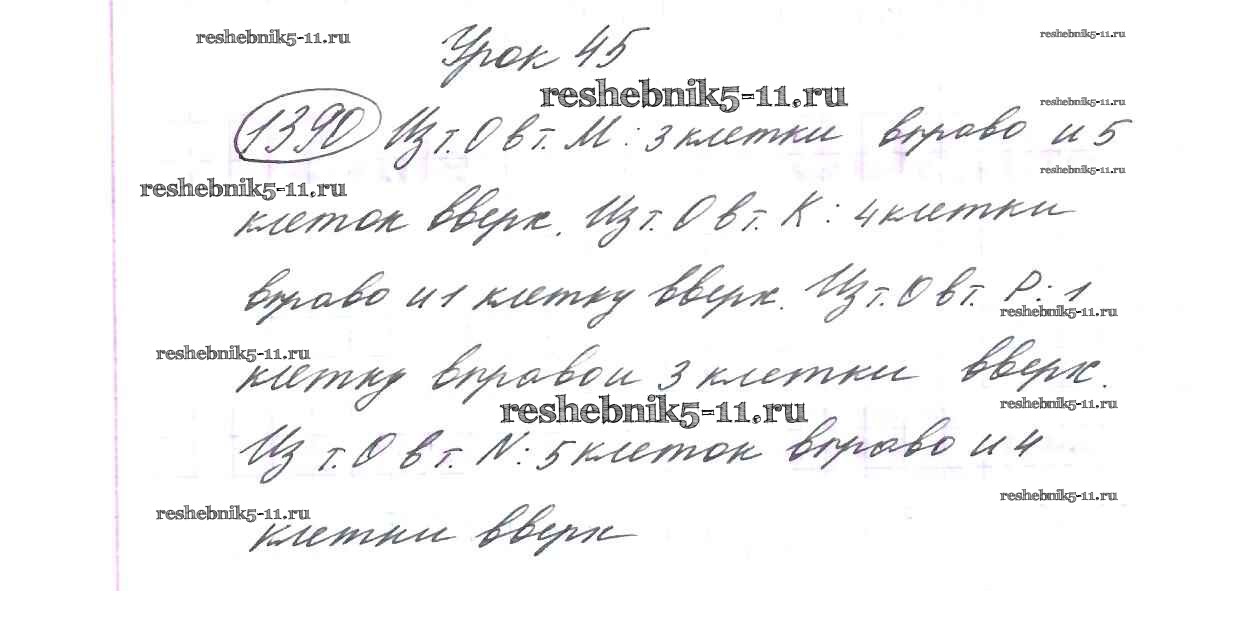 reshebnik5-11.ru
Урок 45
reshebnik5-11.ru
reshebnik5-11.ru
reshebnik5-11.ru
1390 Из т. О в т. М: 3 клетки вправо и 5
reshebnik5-11.ru
reshebnik5-11.ru
клеток вверх. Из т. О в т. К: 4 клетки
вправо и 1 клетку вверх. Из т. О в т. Р: 1
reshebnik5-11.ru
reshebnik5-11.ru
клетку вправо и 3 клетки вверх.
reshebnik5-11.ru
reshebnik5-11.ru
Из т. О в т. N: 5 клеток вправо и 4
reshebnik5-11.ru
reshebnik5-11.ru
клетки вверх